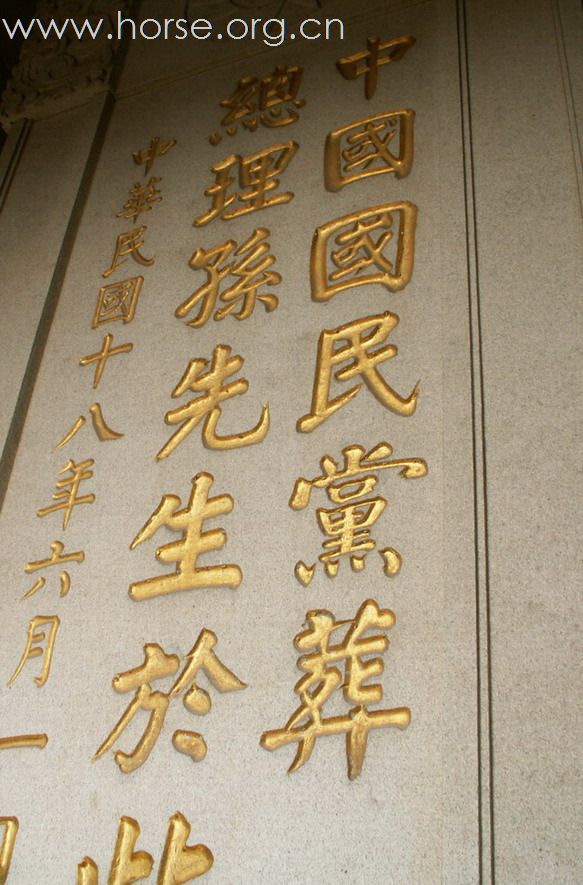 www.horse.org.cn
中國國民黨葬
總理孫先生於此
中華民國十八年六月一日